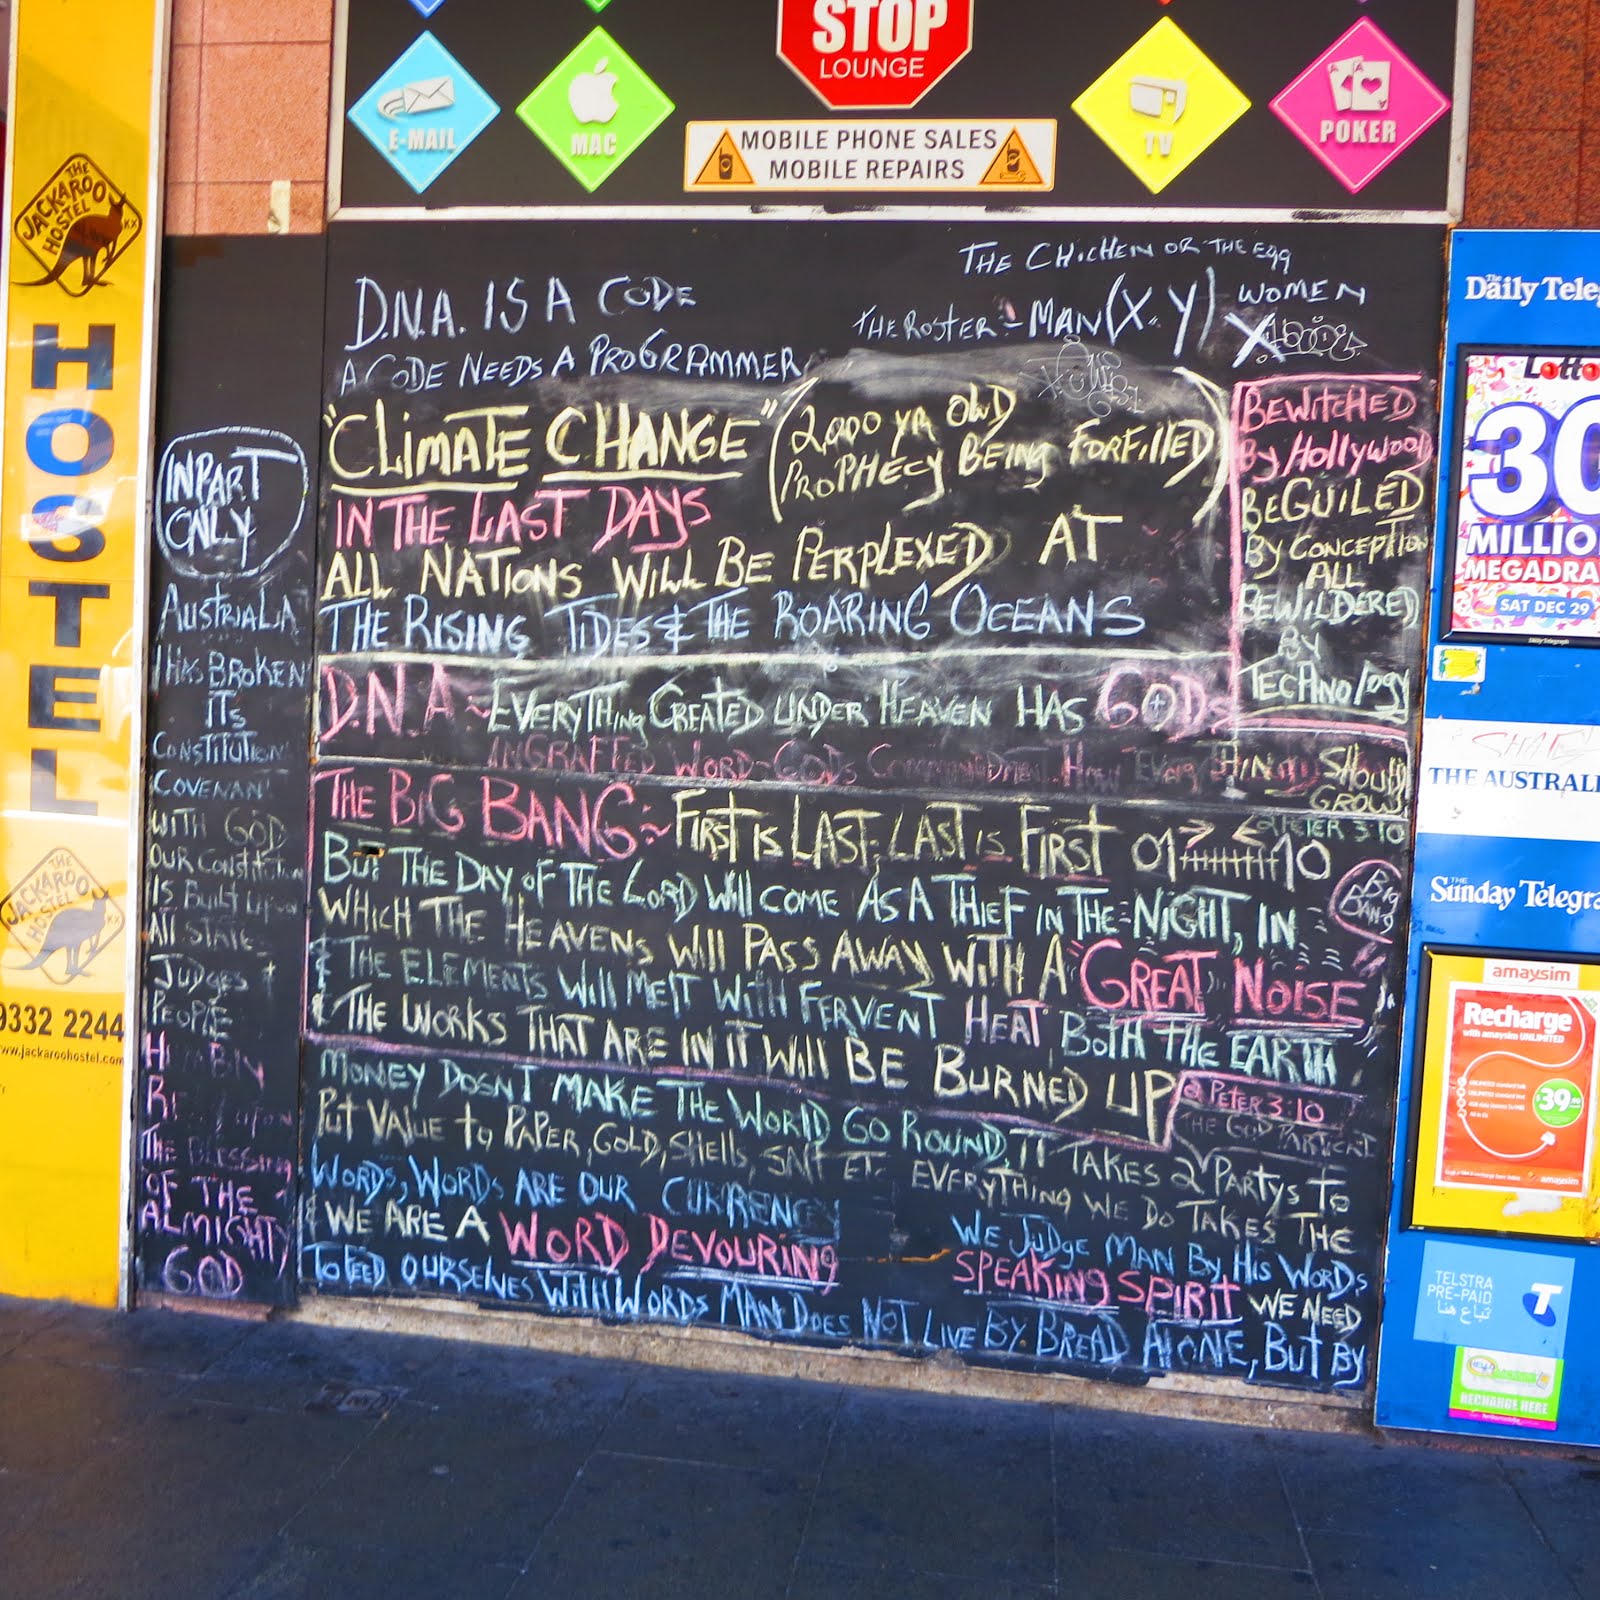 STOP
LOUNGE
E-MAIL
MAC
MOBILE PHONE SALES
MOBILE REPAIRS
TV
POKER
THE JACKAROO HOSTEL KX
HOSTEL
THE JACKAROO HOSTEL
9332 2244
www.jackaroohostel.com
IN PART
ONLY
AUSTRIALIA
HAS BROKEN
ITS
CONSTITUTION
COVENAN
WITH GOD
OUR CONSTITUTION
IS BUILT UPON
All STATE
JUDGES +
PEOPLE
UPON
THE BLESSING
OF THE
ALMIGHTY
GOD
THE CHICHEN OR THE EGG
D.N.A. IS A CODE
THE ROSTER - MAN (X Y) WOMEN X
A CODE NEEDS A PROGRAMMER
"CLIMATE CHANGE" (2,000 YR OLD
PROPHECY BEING FORFILLED)
IN THE LAST DAYS
ALL NATIONS WILL BE PERPLEXED AT
THE RISING TIDES & THE ROARING OCEANS
BEWITCHED
By HOLLYWOOD
BEGUILED
BY CONCEPTION
ALL
BEWILDERED
BY
TECHNOLOGY
D.N.A ~ EVERYTHING CREATED UNDER HEAVEN HAS GODS
INGRAFFED WORD GODS COMMANDMENT HOW EVERYTHING SHOULD
GROW
2 PETER 3:10
THE BIG BANG:~ FIRST IS LAST, LAST IS FIRST 01 10
BUT THE DAY OF THE LORD WILL COME AS A THIEF IN THE NIGHT, IN
BIG
BANG
WHICH THE HEAVENS WILL PASS AWAY WITH A "GREAT NOISE
& THE ELEMENTS WILL MELT WITH FERVENT HEAT BOTH THE EARTH
& THE WORKS THAT ARE IN IT WILL BE BURNED UP
2 PETER 3:10
THE GOD PARTICAL
MONEY DOSNT MAKE THE WORLD GO ROUND, IT TAKES 2 PARTYS TO
PUT VALUE TO PAPER, GOLD, SHELLS, SALT ETC EVERYTHING WE DO TAKES THE
WORDS, WORDS ARE OUR CURRENCY
& WE ARE A WORD DEVOURING
WE JUDGE MAN BY HIS WORDS
SPEAKING SPIRIT WE NEED
TO FEED OURSELVES WITH WORDS MAN DOES NOT LIVE BY BREAD ALONE, BUT BY
The Daily Teleg
Lotto
30
MILLIO
MEGADRA
SAT DEC 29
THE AUSTRALI
THE
Sunday Telegra
amaysim
Recharge
with amaysim UNLIMITED
$39.90
amaysim
TELSTRA
PRE-PAID
تباع هنا
T
HELLO
RECHARGE HERE